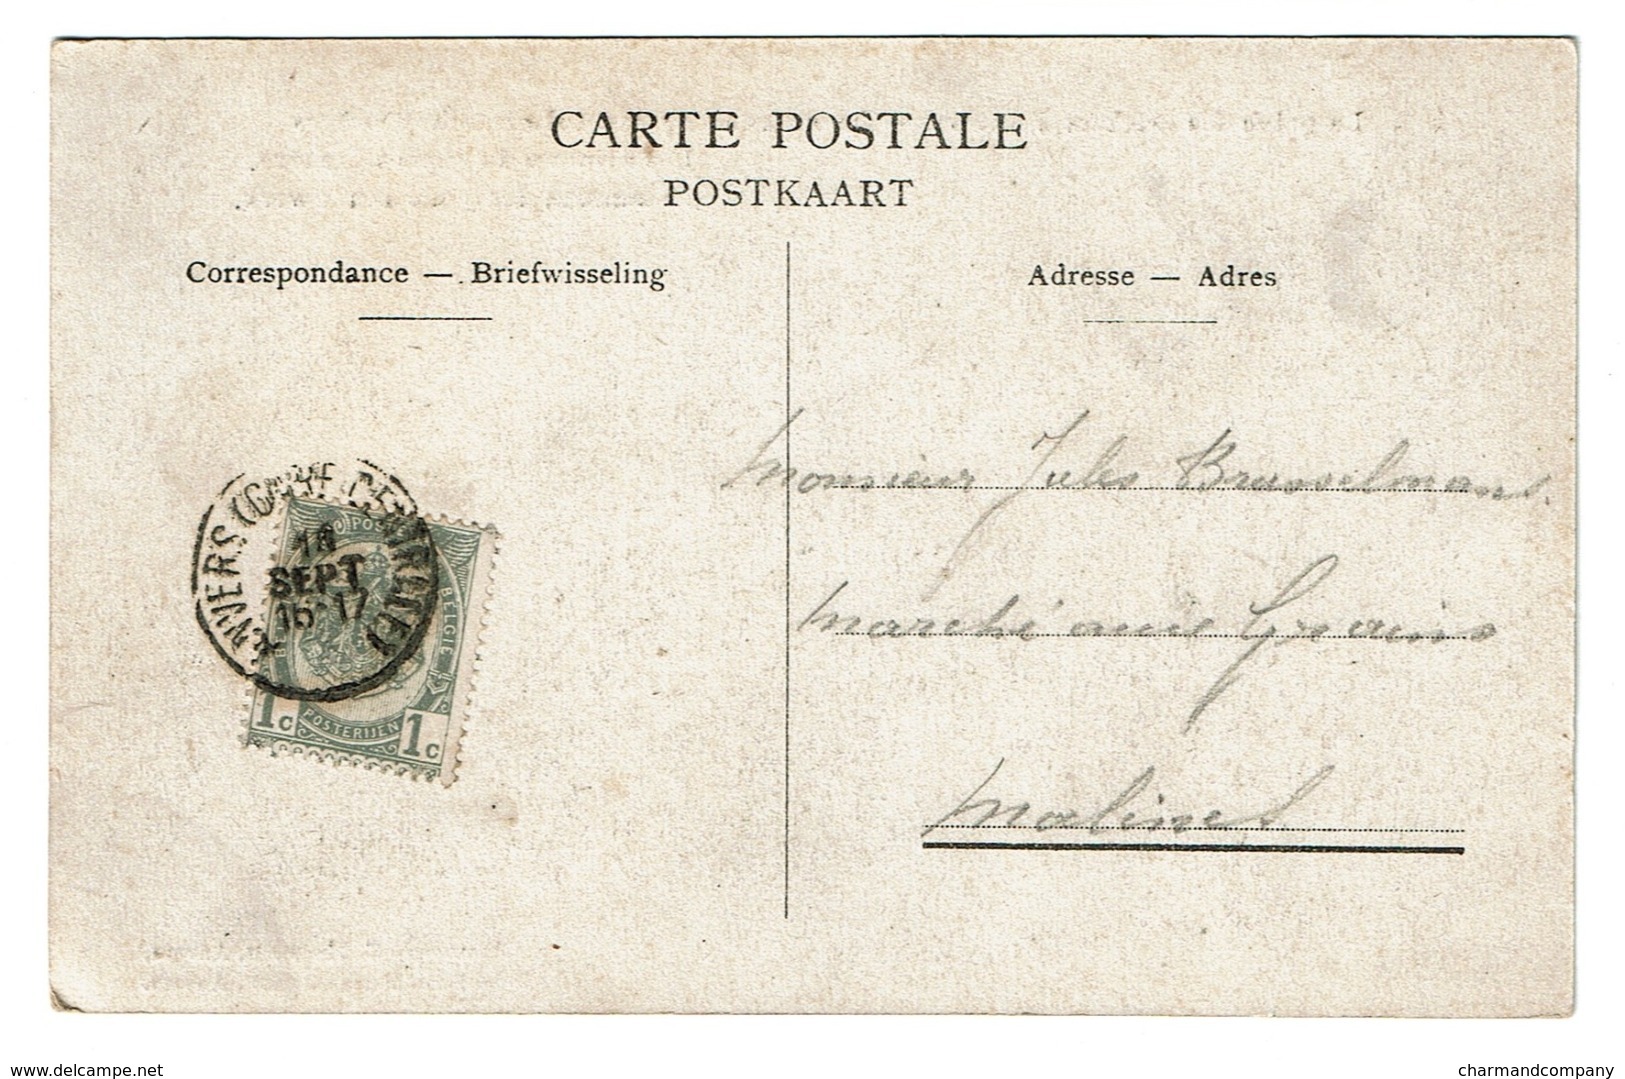 CARTE POSTALE
POSTKAART
Correspondance — . Briefwisseling
Adresse — Adres
ANVERS (GARE CENTRALE)
SEPT
POSTE
BELGIE
POSTERIJEN
1c 1c
Monsieur Jules Brusselmans.
Marché aux Grains
Malines
www.delcampe.net
charmandcompany